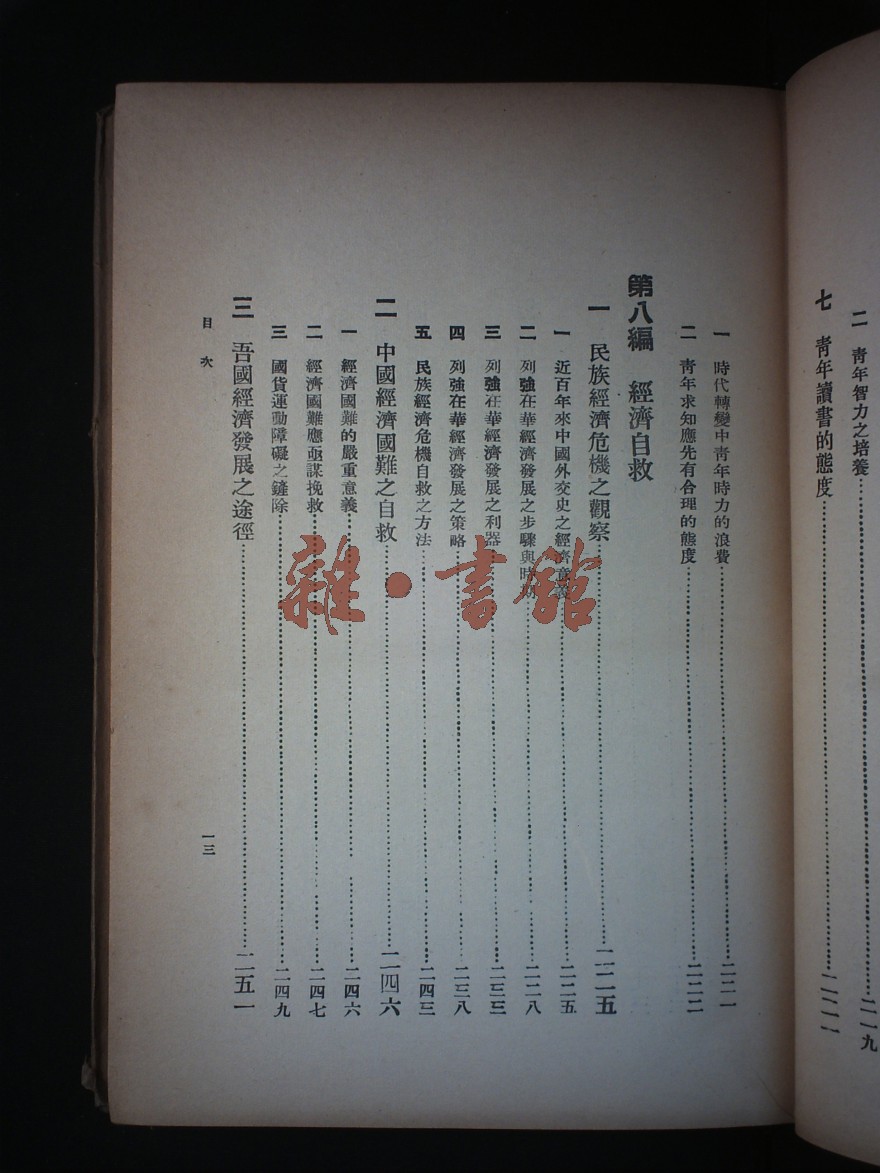 二 青年智力之培養……二一九
七 青年讀書的態度……二二一
一 時代轉變中青年時力的浪費……二二一
二 青年求知應先有合理的態度……二二二
第八編 經濟自救
一 民族經濟危機之觀察……二二五
一 近百年來中國外交史之經濟意義……二二五
二 列強在華經濟發展之步驟與時期……二二八
三 列強在華經濟發展之利器……二三三
四 列強在華經濟發展之策略……二三八
五 民族經濟危機自救之方法……二四三
二 中國經濟國難之自救……二四六
一 經濟國難的嚴重意義……二四六
二 經濟國難應亟謀挽救……二四七
三 國貨運動障礙之鏟除……二四九
三 吾國經濟發展之途徑……二五一
目次
一三
雜·書館